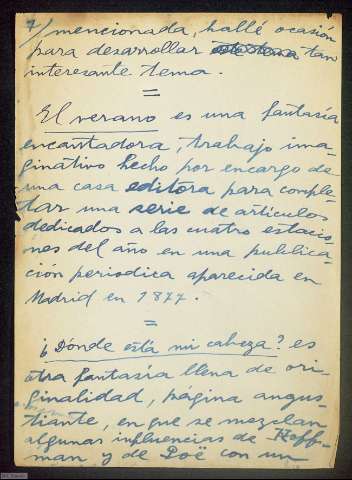 7/ mencionada, hallé ocasión
para desarrollar este tema tan
interesante tema.
=
El verano es una fantasía
encantadora, trabajo ima-
ginativo hecho por encargo de
una casa editora para comple-
tar una serie de artículos
dedicados a las cuatro estacio-
nes del año en una publica-
ción periodica aparecida en
Madrid en 1877.
=
¿Dónde está mi cabeza? es
otra fantasía llena de ori-
ginalidad, página angus-
tiante, en que se mezclan
algunas influencias de Hoff-
man y de Poë con un